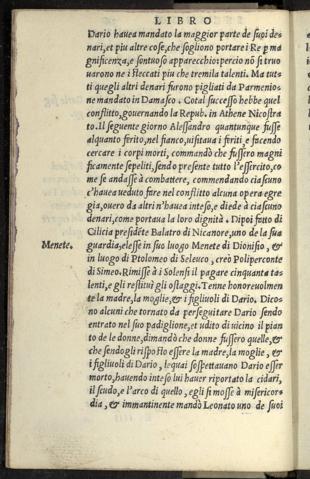 LIBRO
Dario hauea mandato la maggior parte de suoi de
nari, et piu altre cose, che sogliono portare i Re p ma
gnificenza, e sontuoso apparecchio: percio nō si tro
uarono ne i steccati piu che tremila talenti. Ma tut
ti quegli altri denari furono pigliati da Parmenio=
ne mandato in Damasco. Cotal successo hebbe quel
conflitto, gouernando la Repub. in Athene Nicostra
to. Il seguente giorno Alessandro quantunque fusse
alquanto ferito, nel fianco, uisitaua i feriti, e facendo
cercare i corpi morti, commandò che fussero magni
ficamente sepeliti, sendo presente tutto l'essercito, co
me se andasse à combattere, commendando ciascuno
c'hauea ueduto fare nel conflitto alcuna opera egre
gia, ouero da altri n'hauea inteso, e diede à ciascuno
denari, come portaua la loro dignità. Dipoi fatto di
Cilicia presidēte Balatro di Nicanore, uno de la sua
Menete. guardia, elesse in suo luogo Menete di Dionisio, &
in luogo di Ptolomeo di Seleuco, creò Poliperconte
di Simeo. Rimisse à i Solensi il pagare cinquanta ta
lenti, e gli restituì gli ostaggi. Tenne honoreuolmen
te la madre, la moglie, & i figliuoli di Dario. Dico=
no alcuni che tornato da perseguitare Dario sendo
entrato nel suo padiglione, et udito di uicino il pian
to de le donne, dimandò che donne fussero quelle, &
che sendogli risposto essere la madre, la moglie, &
i figliuoli di Dario, lequai sospettauano Dario esser
morto, hauendo inteso lui hauer riportato la cidari,
il scudo, e l'arco di quello, egli si mosse à misericor=
dia, & immantinente mandò Leonato uno de suoi